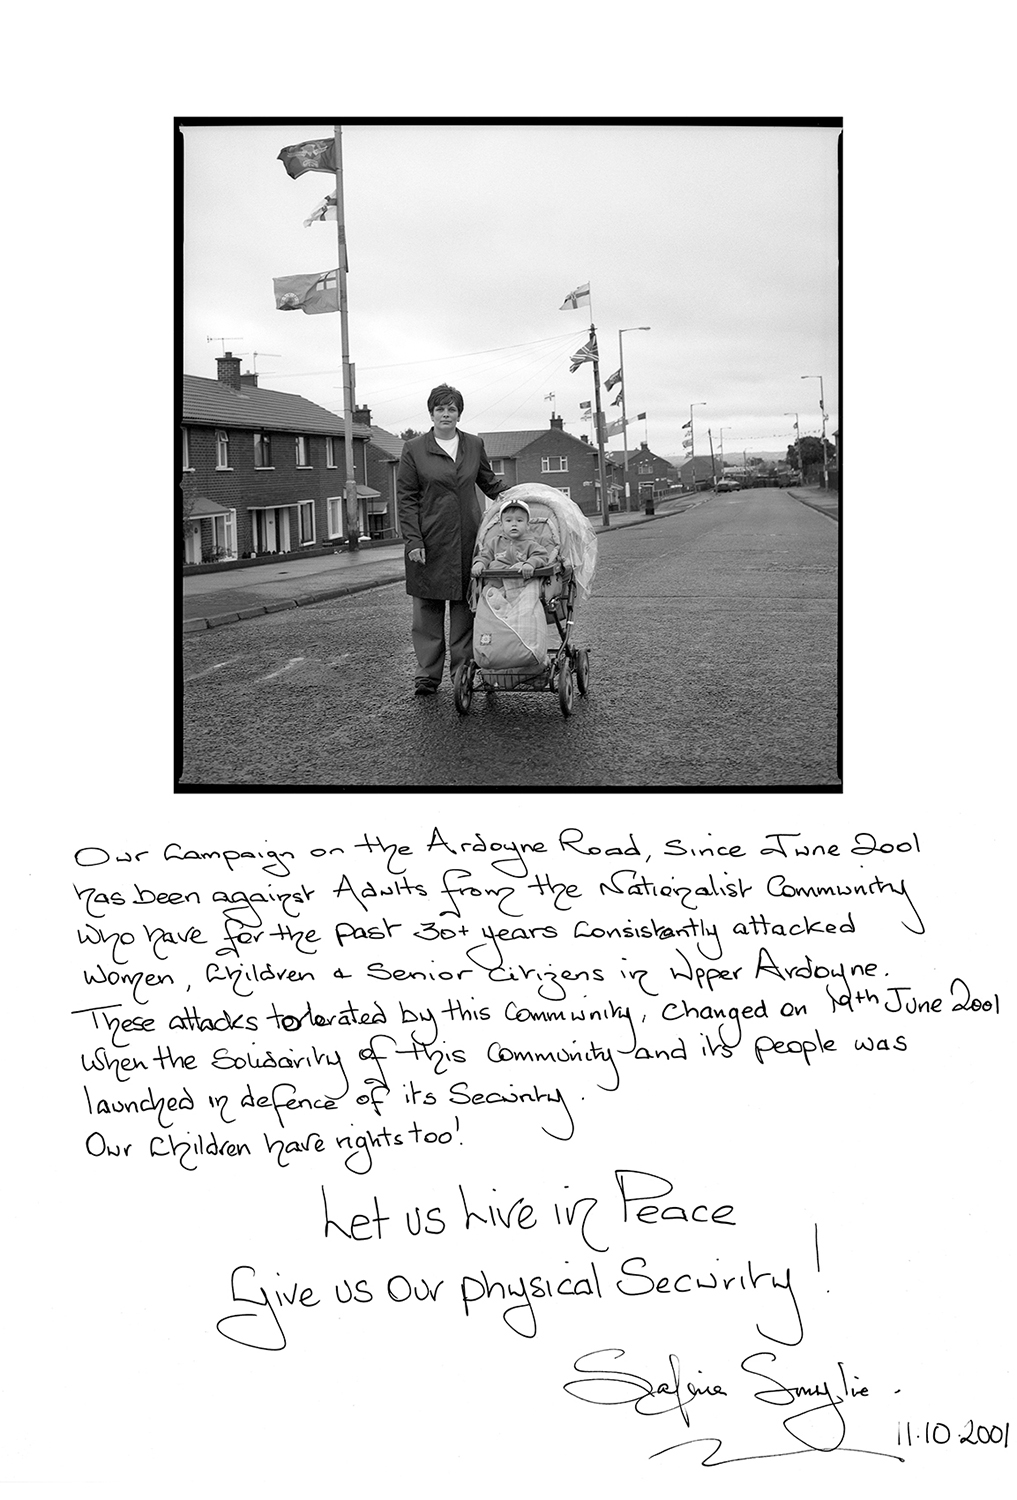 Our Campaign on the Ardoyne Road, since June 2001
has been against Adults from the Nationalist Community
who have for the past 30+ years consistantly attacked
women, children & Senior citizens in Upper Ardoyne.
These attacks tolerated by this Community, changed on 19th June 2001
when the Solidairity of this Community and its people was
launched in defence of its Security.
Our Children have rights too!
Let us Live in Peace
Give us Our physical Security!
Smylie.
11.10.2001